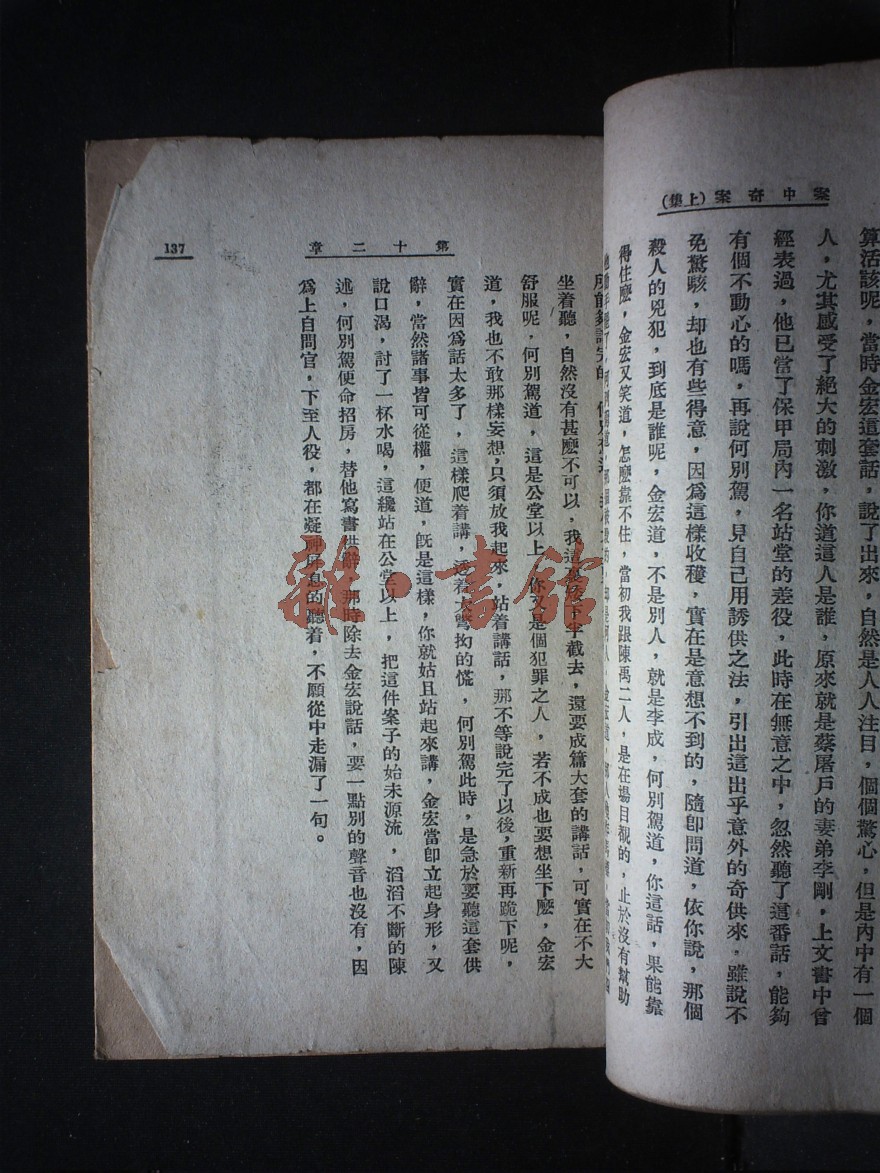 案中奇案(上集)
算活該呢，當時金宏這套話，說了出來，自然是人人注目，個個驚心，但是內中有一個
人，尤其感受了絕大的刺激，你道這人是誰，原來就是蔡屠戶的妻弟李剛，上文書中曾
經表過，他已當了保甲局內一名站堂的差役，此時在無意之中，忽然聽了這番話，能夠
有個不動心的嗎，再說何別駕，見自己用誘供之法，引出這出乎意外的奇供來，雖說不
免驚駭，却也有些得意，因爲這樣收穫，實在是意想不到的，隨卽問道，依你說，那個
殺人的兇犯，到底是誰呢，金宏道，不是別人，就是李成，何別駕道，你這話，果能靠
得住麽，金宏又笑道，怎麽靠不住，當初我跟陳禹二人，是在場目覩的，止於沒有幫助
第十二章
137
坐着聽，自然沒有甚麽不可以，我這下半截去，還要成篇大套的講話，可實在不大
舒服呢，何別駕道，這是公堂以上，你又是個犯罪之人，若不成也要想坐下麽，金宏
道，我也不敢那樣妄想，只須放我起來，站着講話，那不等說完了以後，重新再跪下呢，
實在因爲話太多了，這樣爬着講，大彎拘的慌，何別駕此時，是急於要聽這套供
辭，當然諸事皆可從權，便道，旣是這樣，你就姑且站起來講，金宏當卽立起身形，又
說口渴，討了一杯水喝，這纔站在公堂以上，把這件案子的始末源流，滔滔不斷的陳
述，何別駕便命招房，替他寫書供辭，那時除去金宏說話，要一點別的聲音也沒有，因
爲上自問官，下至人役，都在凝神屏息的聽着，不願從中走漏了一句。
雜·書館